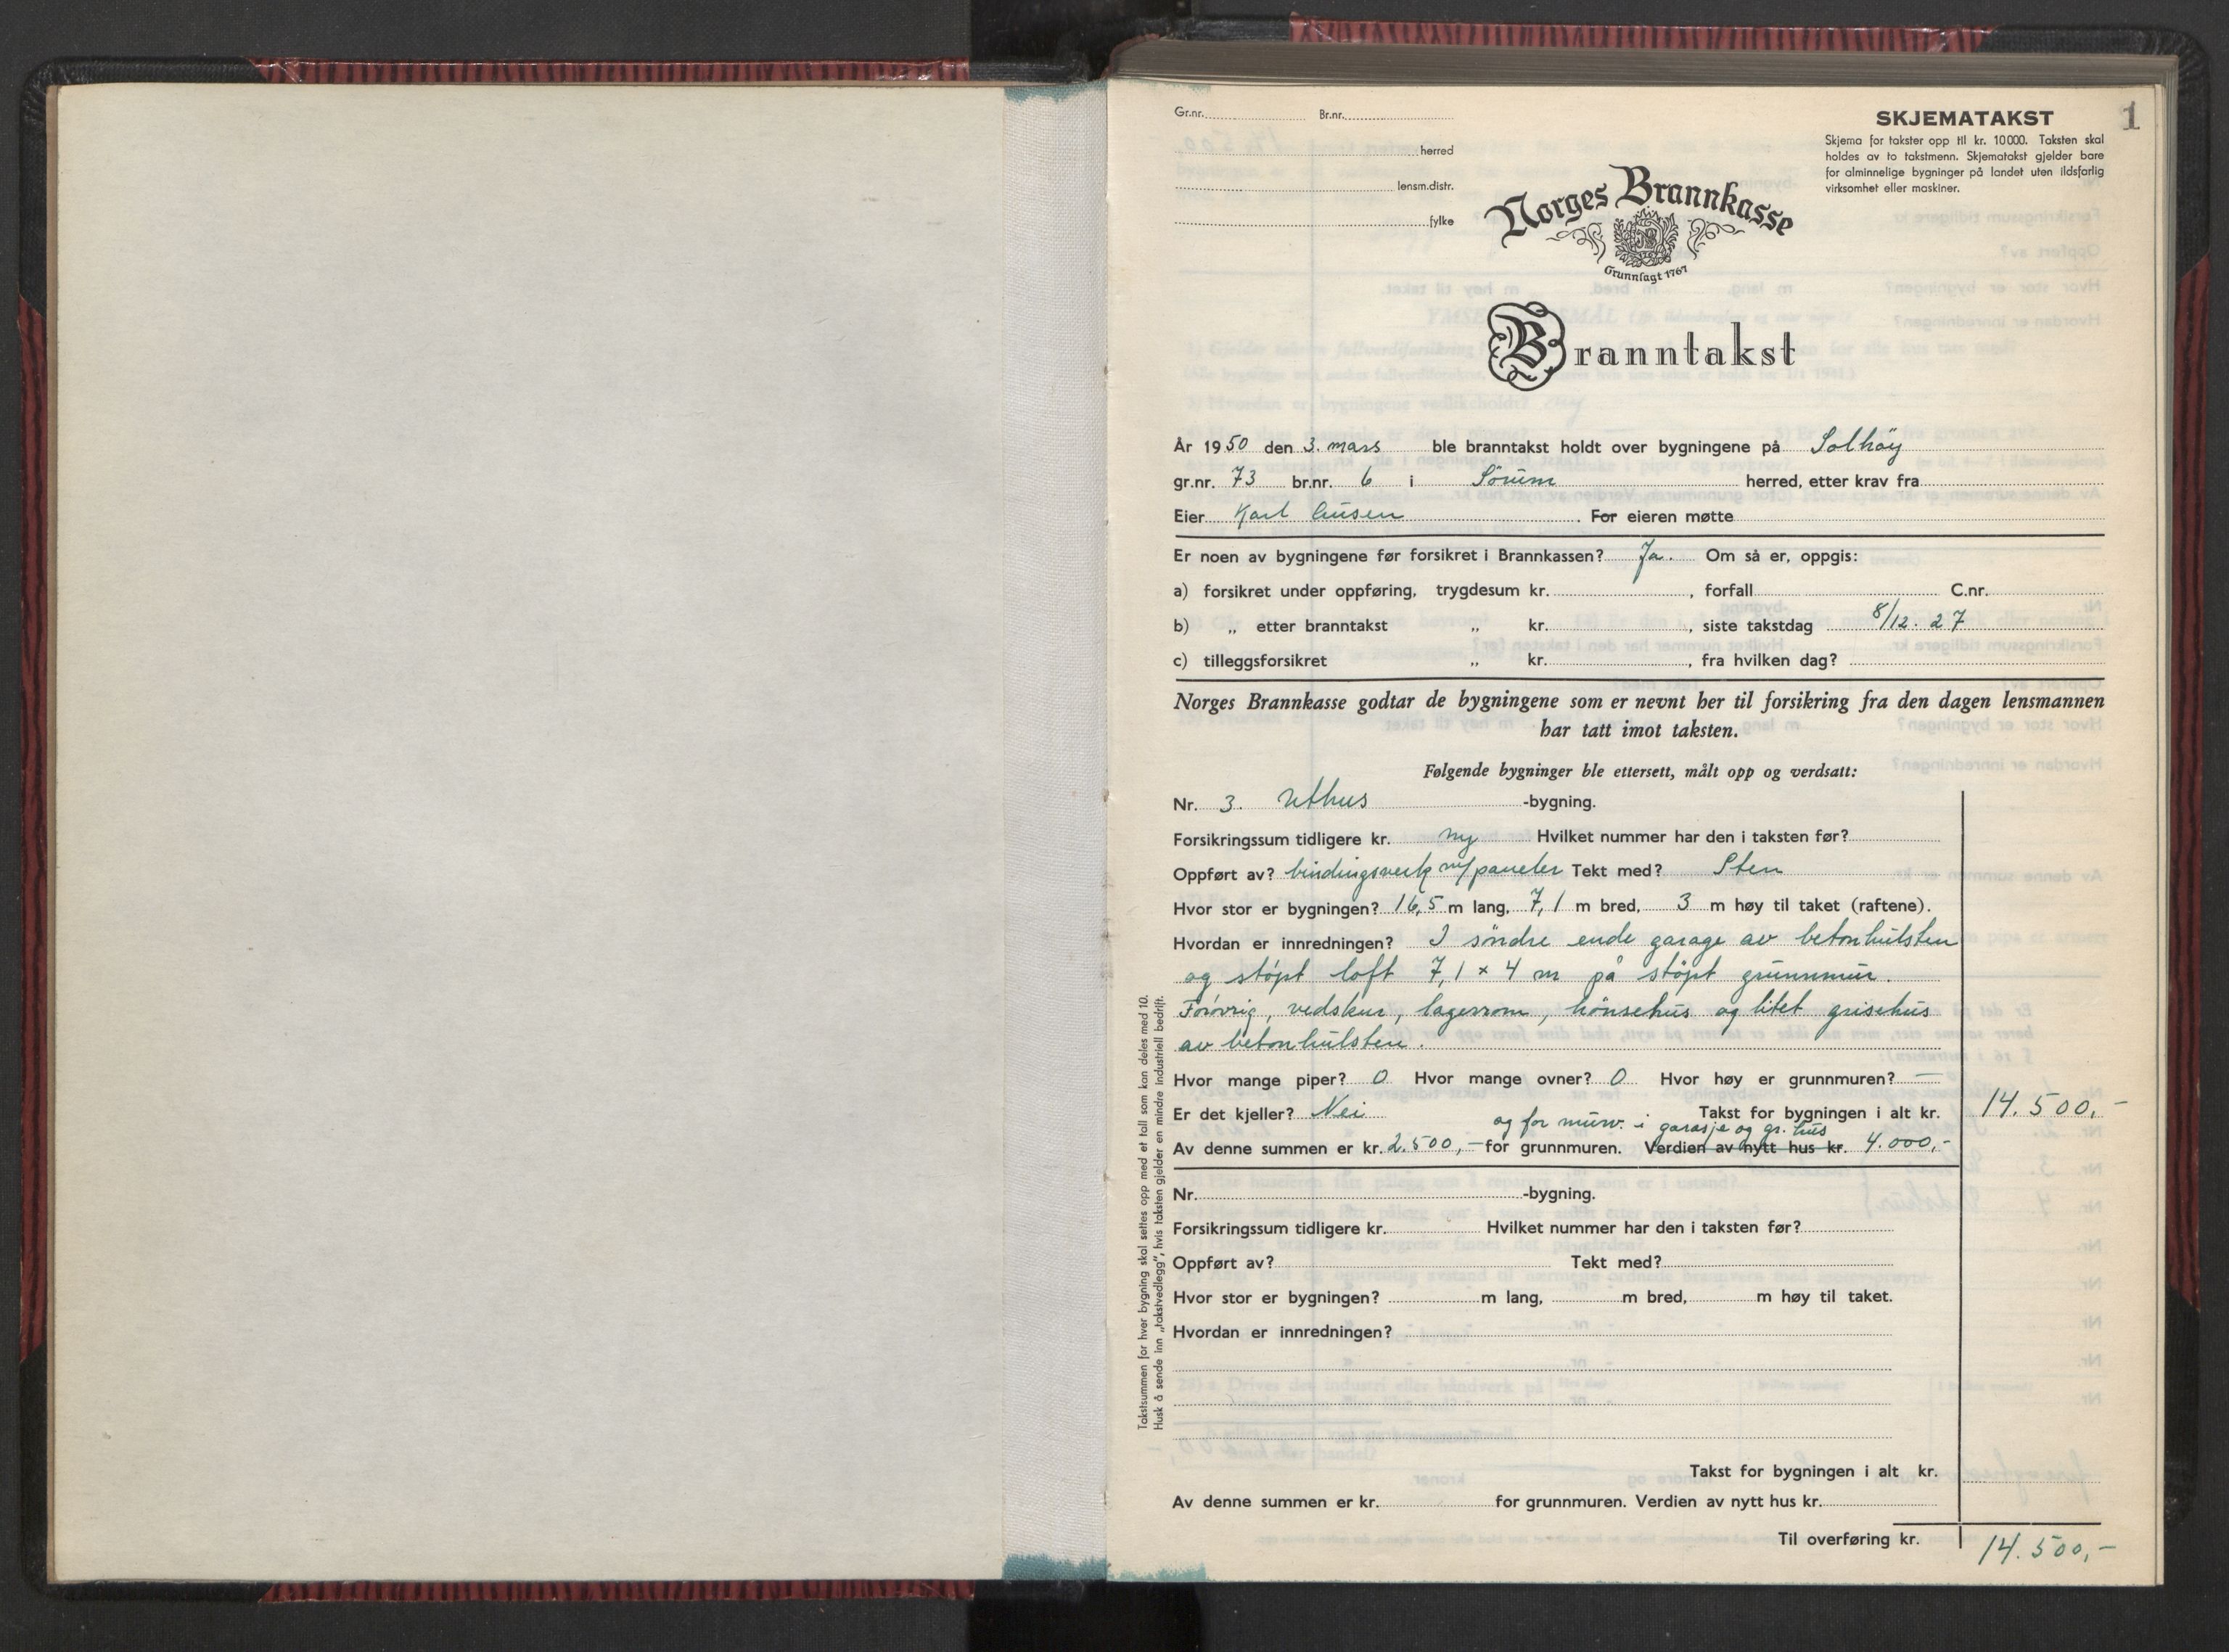 Gr.nr. Br.nr.
herred
lensm.distr.
fylke
Norges Brannkasse
Grunnlagt 1767
SKJEMATAKST
1
Skjema for takster opp til kr. 10000. Taksten skal
holdes av to takstmenn. Skjematakst gjelder bare
for alminnelige bygninger på landet uten ildsfarlig
virksomhet eller maskiner.
Branntakst
År 1950 den 3. mars ble branntakst holdt over bygningene på Solhöy
gr.nr. 73 br.nr. 6 i Sörum herred, etter krav fra
Eier Karl . For eieren møtte
Er noen av bygningene før forsikret i Brannkassen? Ja. Om så er, oppgis:
a) forsikret under oppføring, trygdesum kr. , forfall C.nr.
b) „ etter branntakst „ kr. , siste takstdag 8/12. 27
c) tilleggsforsikret „ kr. , fra hvilken dag?
Norges Brannkasse godtar de bygningene som er nevnt her til forsikring fra den dagen lensmannen
har tatt imot taksten.
Følgende bygninger ble ettersett, målt opp og verdsatt:
Nr. 3. Uthus -bygning.
Forsikringssum tidligere kr. ny Hvilket nummer har den i taksten før?
Oppført av? bindingsverk m/paneler Tekt med? Sten
Hvor stor er bygningen? 16,5 m lang, 7,1 m bred, 3 m høy til taket (raftene).
Hvordan er innredningen? I söndre ende garage av betonhulsten
og stöpt loft 7,1 x 4 m på stöpt grunnmur.
Forövrig, vedskur, lagerrom, hönsehus og litet grisehus
av betonhulsten.
Hvor mange piper? 0 Hvor mange ovner? 0 Hvor høy er grunnmuren? —
Er det kjeller? Nei Takst for bygningen i alt kr. 14.500,-
og for murv. i garasje og gr. hus
Av denne summen er kr. 2.500,- for grunnmuren. Verdien av nytt hus kr. 4.000,-
Nr. -bygning.
Forsikringssum tidligere kr. Hvilket nummer har den i taksten før?
Oppført av? Tekt med?
Hvor stor er bygningen? m lang, m bred, m høy til taket.
Hvordan er innredningen?
Takst for bygningen i alt kr.
Av denne summen er kr. for grunnmuren. Verdien av nytt hus kr.
Til overføring kr. 14.500,-
Takstsummen for hver bygning skal settes opp med et tall som kan deles med 10.
Husk å sende inn „takstvedlegg”, hvis taksten gjelder en mindre industriell bedrift.